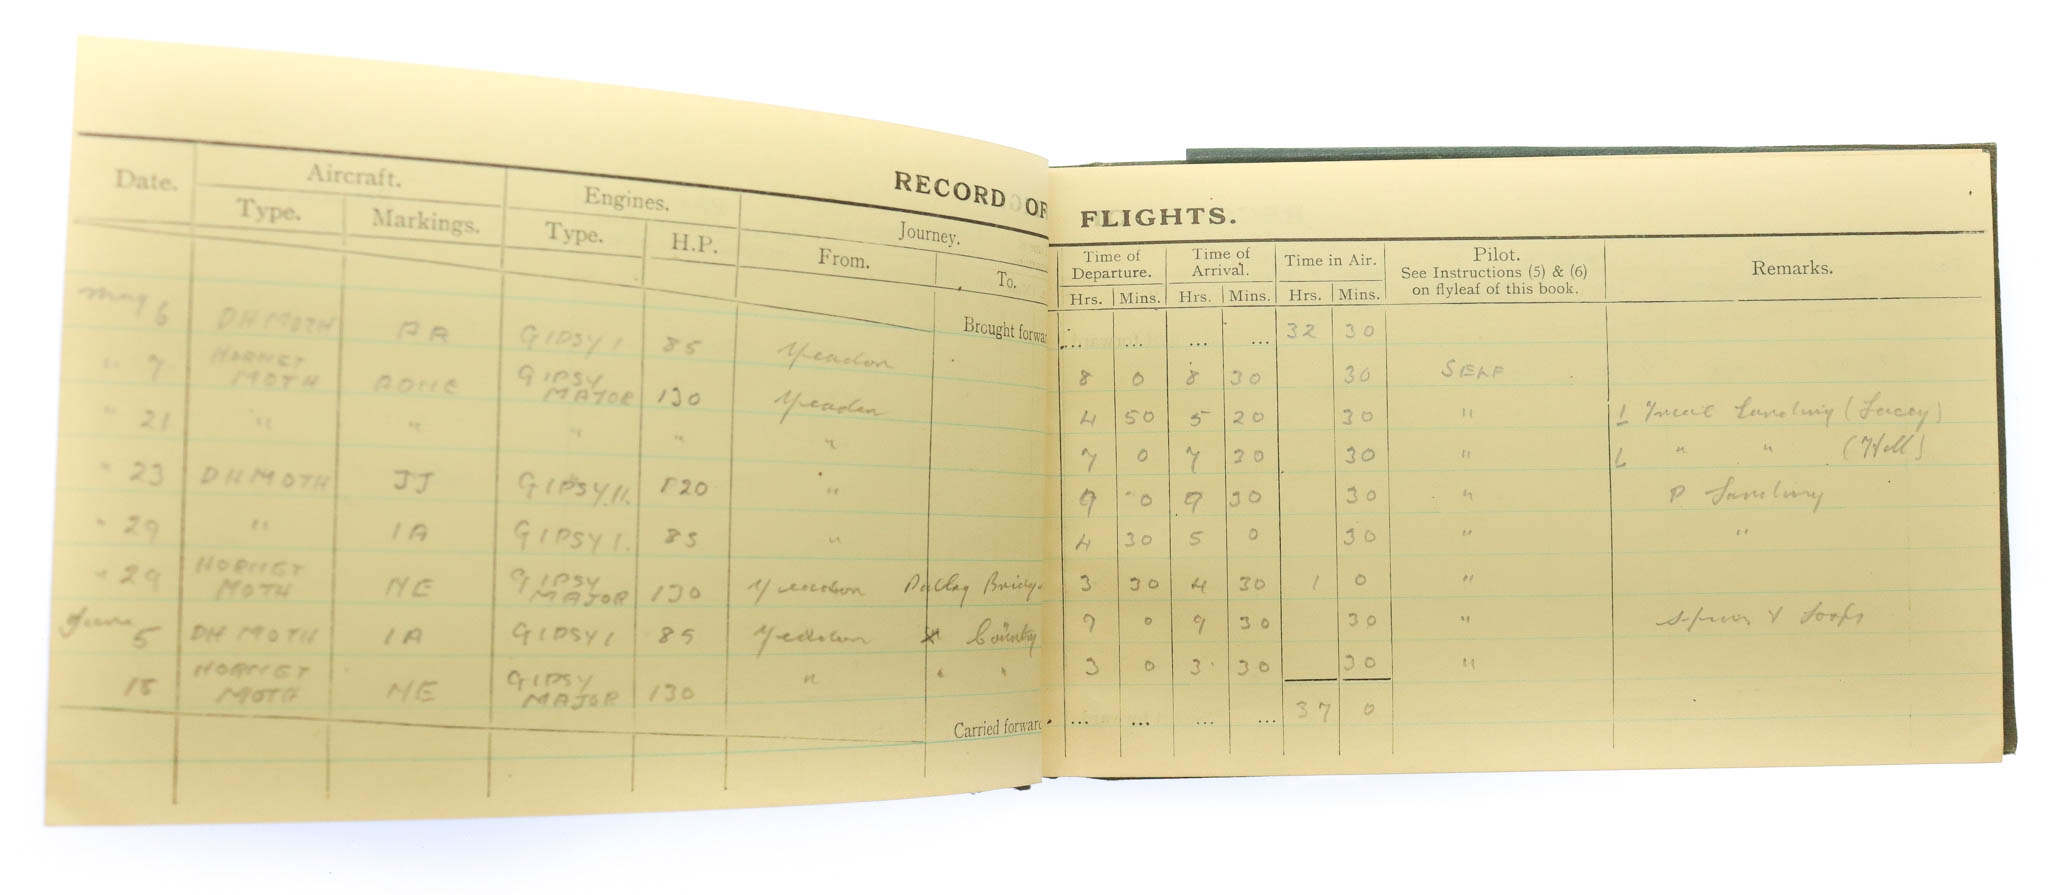 RECORD OF FLIGHTS.
Date. Aircraft. Engines. Journey. Time of Departure. Time of Arrival. Time in Air. Pilot. See Instructions (5) & (6) on flyleaf of this book. Remarks.
Type. Markings. Type. H.P. From. To. Hrs. Mins. Hrs. Mins. Hrs. Mins.
Brought forwar ... ... ... ... 32 30
May 6 DH MOTH GIPSY I 85 Yeadon 8 0 8 30 30 SELF
" 7 HORNET MOTH GIPSY MAJOR 130 Yeadon 4 50 5 20 30 " 1 Landing (Lacey)
" 21 " " " " " 7 0 7 30 30 " " " (Hill)
" 23 DH MOTH JJ GIPSY II. 120 " 9 0 9 30 30 " P Landing
" 29 " IA GIPSY I. 85 " 4 30 5 0 30 " "
" 29 HORNET MOTH NE GIPSY MAJOR 130 Yeadon Bridge 3 30 4 30 1 0 "
June 5 DH MOTH IA GIPSY I 85 Yeadon x Country 9 0 9 30 30 " Spins & Loops
18 HORNET MOTH NE GIPSY MAJOR 130 " " " 3 0 3 30 30 "
Carried forward ... ... ... ... 37 0